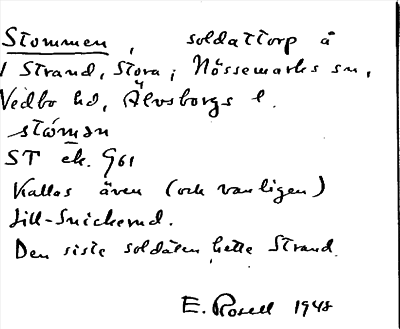 Stommen, soldattorp å
1 Strand, Stora, Nössemarks sn,
Vedbo hd, Älvsborgs l.
stóman
ST ek. G61
Kallas även (och vanligen)
Lill-Snickernd.
Den siste soldaten hette Strand.
E. Rosell 1948